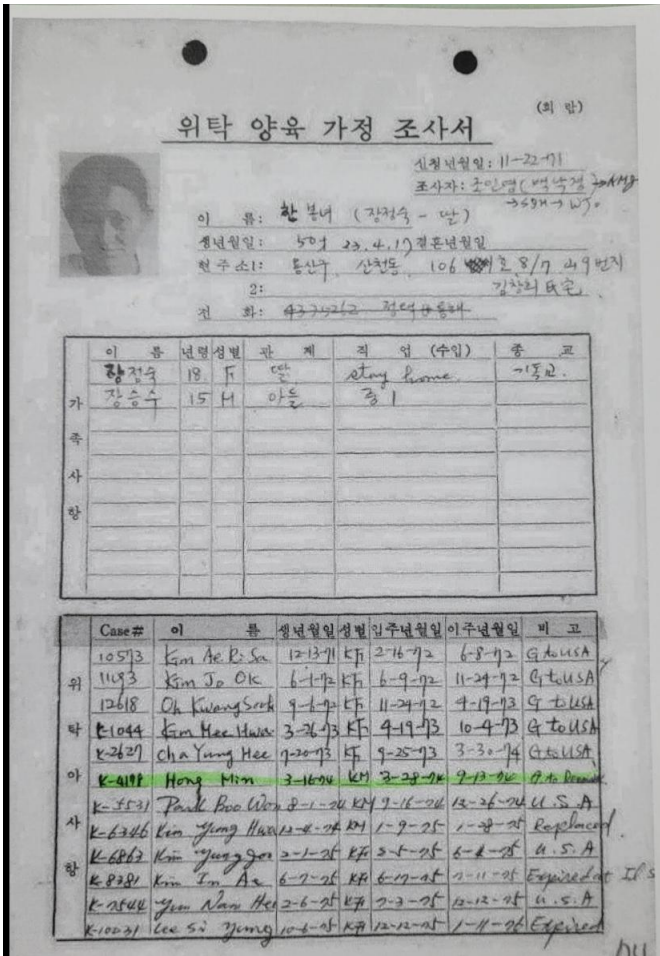 (회 람)
위탁 양육 가정 조사서
신청년월일: 11-22-71
조사자: 조인영 (백낙경)
이 름: 한봉녀 (장정숙 - 딸)
생년월일: 50세 23.4.17 결혼년월일
현주소1: 용산구, 산천동, 106 8/7
2:
전 화:
이 름 년령 성별 관 계 직 업 (수입) 종 교
장정숙 18 F 딸 stay home. 기독교.
장승수 15 M 아들 중 1
가 족 사 항
Case# 이 름 생년월일 성별 입주년월일 이주년월일 비 고
10573 Kim Ae Ri Sa 12-13-71 KF 2-16-72 6-8-72 G to USA
Kim Jo OK 6-1-72 KF 6-9-72 11-24-72 G to USA
12618 Oh Kwang Sook 9-6-72 KF 11-24-72 4-19-73 G to USA
K-1044 Kim Mee Hwa 3-26-73 KF 4-19-73 10-4-73 G to USA
K-2627 Cha Yung Hee 7-20-73 KF 9-25-73 3-30-74 G to USA
K-4198 Hong Min 3-16-74 KM 3-28-74 9-13-74
K-5531 Park Boo Won 8-1-74 KM 9-16-74 12-26-74 U.S.A
K-6346 Kim Yung Hwa 12-4-74 KM 1-9-75 1-28-75 Replaced
K-6863 Kim 2-1-75 KF 3-5-75 U.S.A
K-8381 Kim In Ae 6-7-75 KF 6-17-75 7-11-75 Expired at
K-7544 Yun Nan Hee 2-6-75 KF 7-3-75 12-12-75 U.S.A
K-10031 Lee Si Yung 10-6-75 KF 12-12-75 1-11-76 Expired
위 탁 아 사 항